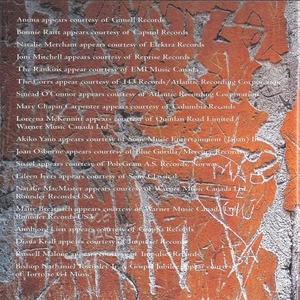 Anúna appears courtesy of Gimell Records
Bonnie Raitt appears courtesy of Capitol Records
Natalie Merchant appears courtesy of Elektra Records
Joni Mitchell appears courtesy of Reprise Records
The Rankins appear courtesy of EMI Music Canada
The Corrs appear courtesy of 143 Records/Atlantic Recording Corporation
Sinéad O'Connor appears courtesy of Atlantic Recording Corporation
Mary Chapin Carpenter appears courtesy of Columbia Records
Loreena McKennitt appears courtesy of Quinlan Road Limited/
Warner Music Canada Ltd.
Akiko Yano appears courtesy of Sony Music Entertainment (Japan)
Joan Osborne appears courtesy of Blue Gorilla/Mercury Records
Sissel appears courtesy of PolyGram A.S. Records Norway
Eileen Ivers appears courtesy of Sony Classical
Natalie MacMaster appears courtesy of Warner Music Canada Ltd.
Rounder Records USA
appears courtesy of Warner Music Canada
Rounder Records USA
appears courtesy of Records
Diana Krall appears courtesy of Impulse! Records
Russell Malone appears courtesy of Impulse! Records
Bishop Nathaniel Gospel Jubilee appear courtesy
of Music